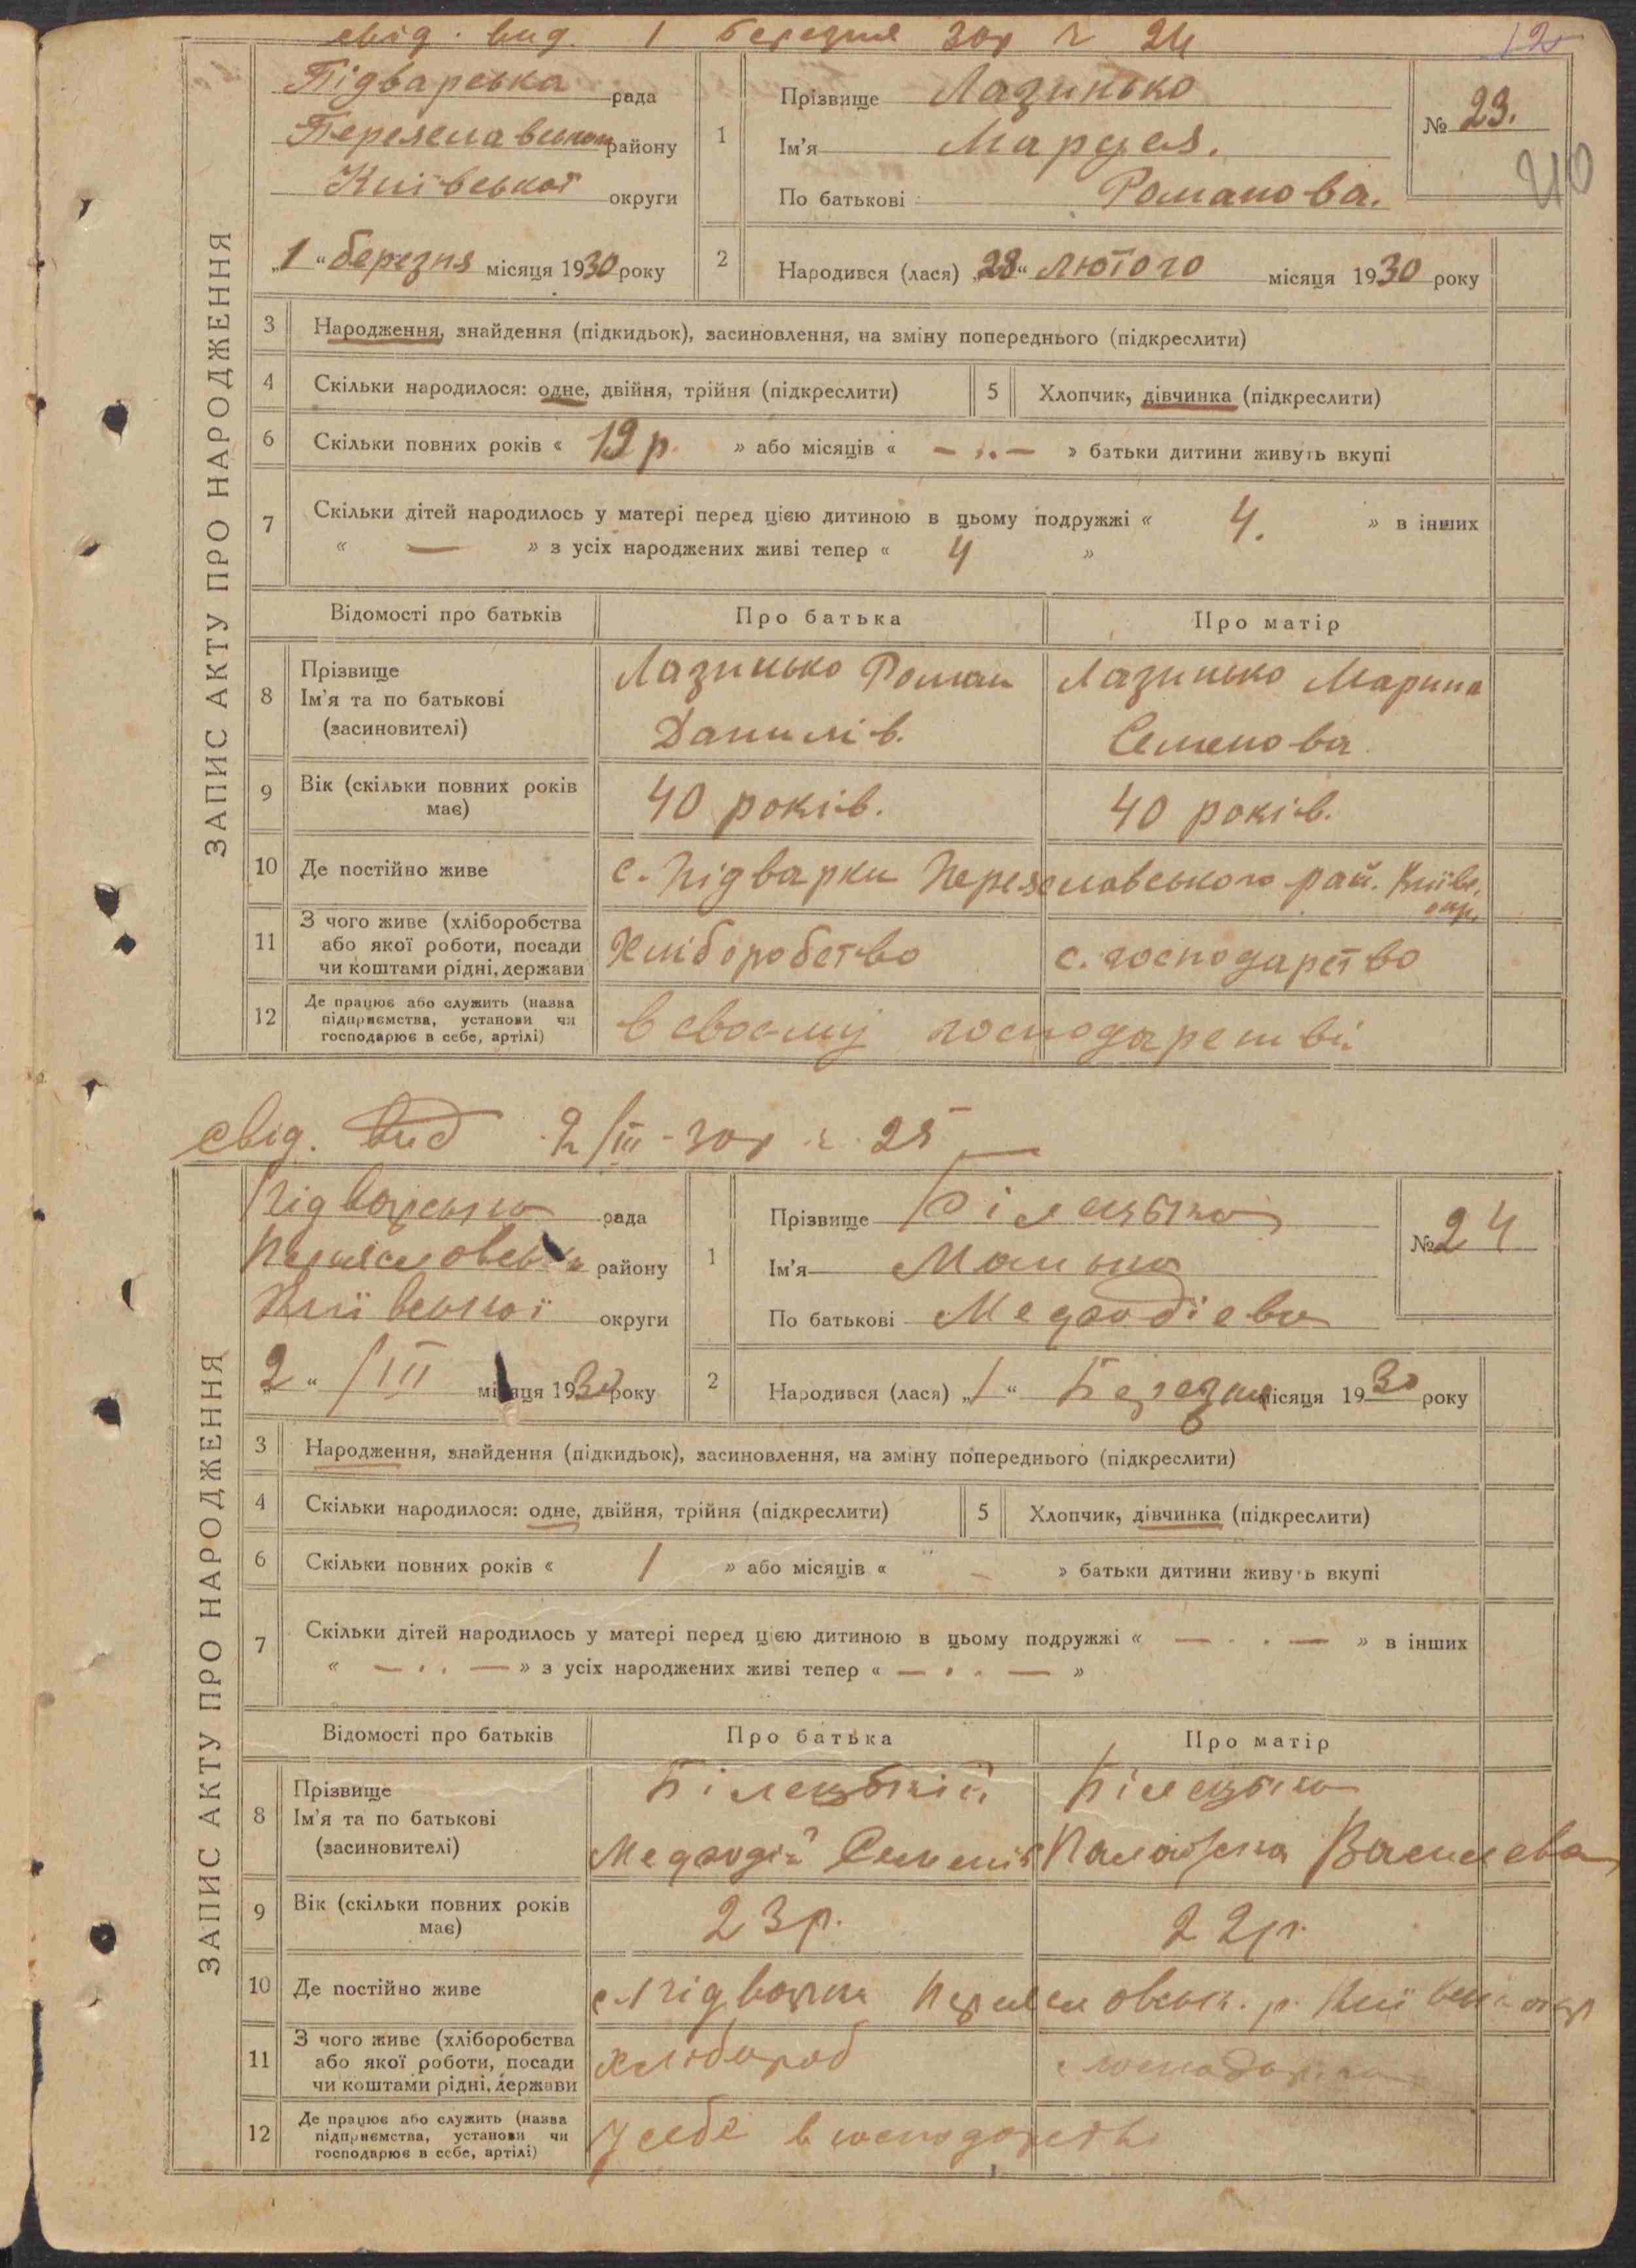 свід. вид. 1 березня 30р ч 24
12
Підварська рада
Переяславського району
Київської округи
„1“ березня місяця 1930 року
1 Прізвище Лазинько
Ім'я Марцея.
По батькові Романова.
№ 23.
40
2 Народився (лася) „28“ лютого місяця 1930 року
ЗАПИС АКТУ ПРО НАРОДЖЕННЯ
3 Народження, знайдення (підкидьок), засиновлення, на зміну попереднього (підкреслити)
4 Скільки народилося: одне, двійня, трійня (підкреслити) 5 Хлопчик, дівчинка (підкреслити)
6 Скільки повних років « 19 р. » або місяців « – ․․ – » батьки дитини живуть вкупі
7 Скільки дітей народилось у матері перед цією дитиною в цьому подружжі « 4. » в інших
« — » з усіх народжених живі тепер « 4 »
Відомості про батьків Про батька Про матір
8 Прізвище
Ім'я та по батькові
(засиновителі)
Лазинько Роман
Данилів.
Лазинько Марина
Семенова
9 Вік (скільки повних років має) 40 років. 40 років.
10 Де постійно живе с. Підварки Переяславського рай. Київ. окр.
11 З чого живе (хліборобства
або якої роботи, посади
чи коштами рідні, держави
Хліборобство с. господарство
12 Де працює або служить (назва
підприємства, установи чи
господарює в себе, артілі)
в своєму господарстві
свід. вид 2/III-30р ч. 25
Підварська рада
Переяславськ району
Київської округи
„2“ /III місяця 1930 року
1 Прізвище Білецька
Ім'я Манька
По батькові Медходієва
№ 24
2 Народився (лася) „1“ Березня місяця 1930 року
ЗАПИС АКТУ ПРО НАРОДЖЕННЯ
3 Народження, знайдення (підкидьок), засиновлення, на зміну попереднього (підкреслити)
4 Скільки народилося: одне, двійня, трійня (підкреслити) 5 Хлопчик, дівчинка (підкреслити)
6 Скільки повних років « 1 » або місяців « – » батьки дитини живуть вкупі
7 Скільки дітей народилось у матері перед цією дитиною в цьому подружжі « — ․ ․ — » в інших
« — ․ ․ — » з усіх народжених живі тепер « — ․ ․ — »
Відомості про батьків Про батька Про матір
8 Прізвище
Ім'я та по батькові
(засиновителі)
Білецькій
Медходій Семенів
Білецька
Палажка Василева
9 Вік (скільки повних років має) 23р. 22р.
10 Де постійно живе с Підварки Переяславськ. р. Київськ окр
11 З чого живе (хліборобства
або якої роботи, посади
чи коштами рідні, держави
хлібороб господарка
12 Де працює або служить (назва
підприємства, установи чи
господарює в себе, артілі)
У себе в господарстві